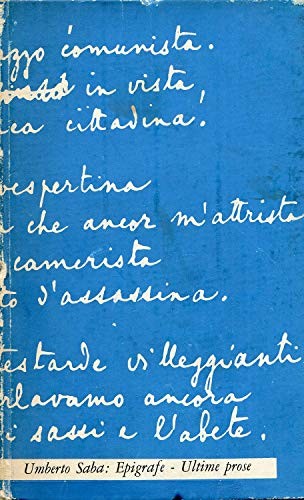 azzo comunista.
in vista,
ca cittadina!
vespertina
che ancor m'attrista
camerista
to d'assassina.
testarde villeggianti
rlavamo ancora
i sassi e l'abete.
Umberto Saba: Epigrafe - Ultime prose